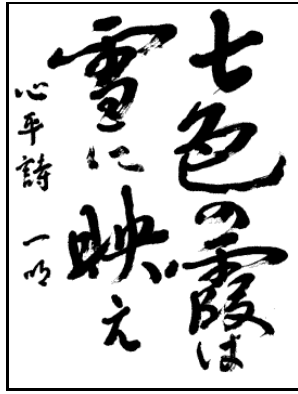 七色の霞は
雪に映え
心平詩 一明